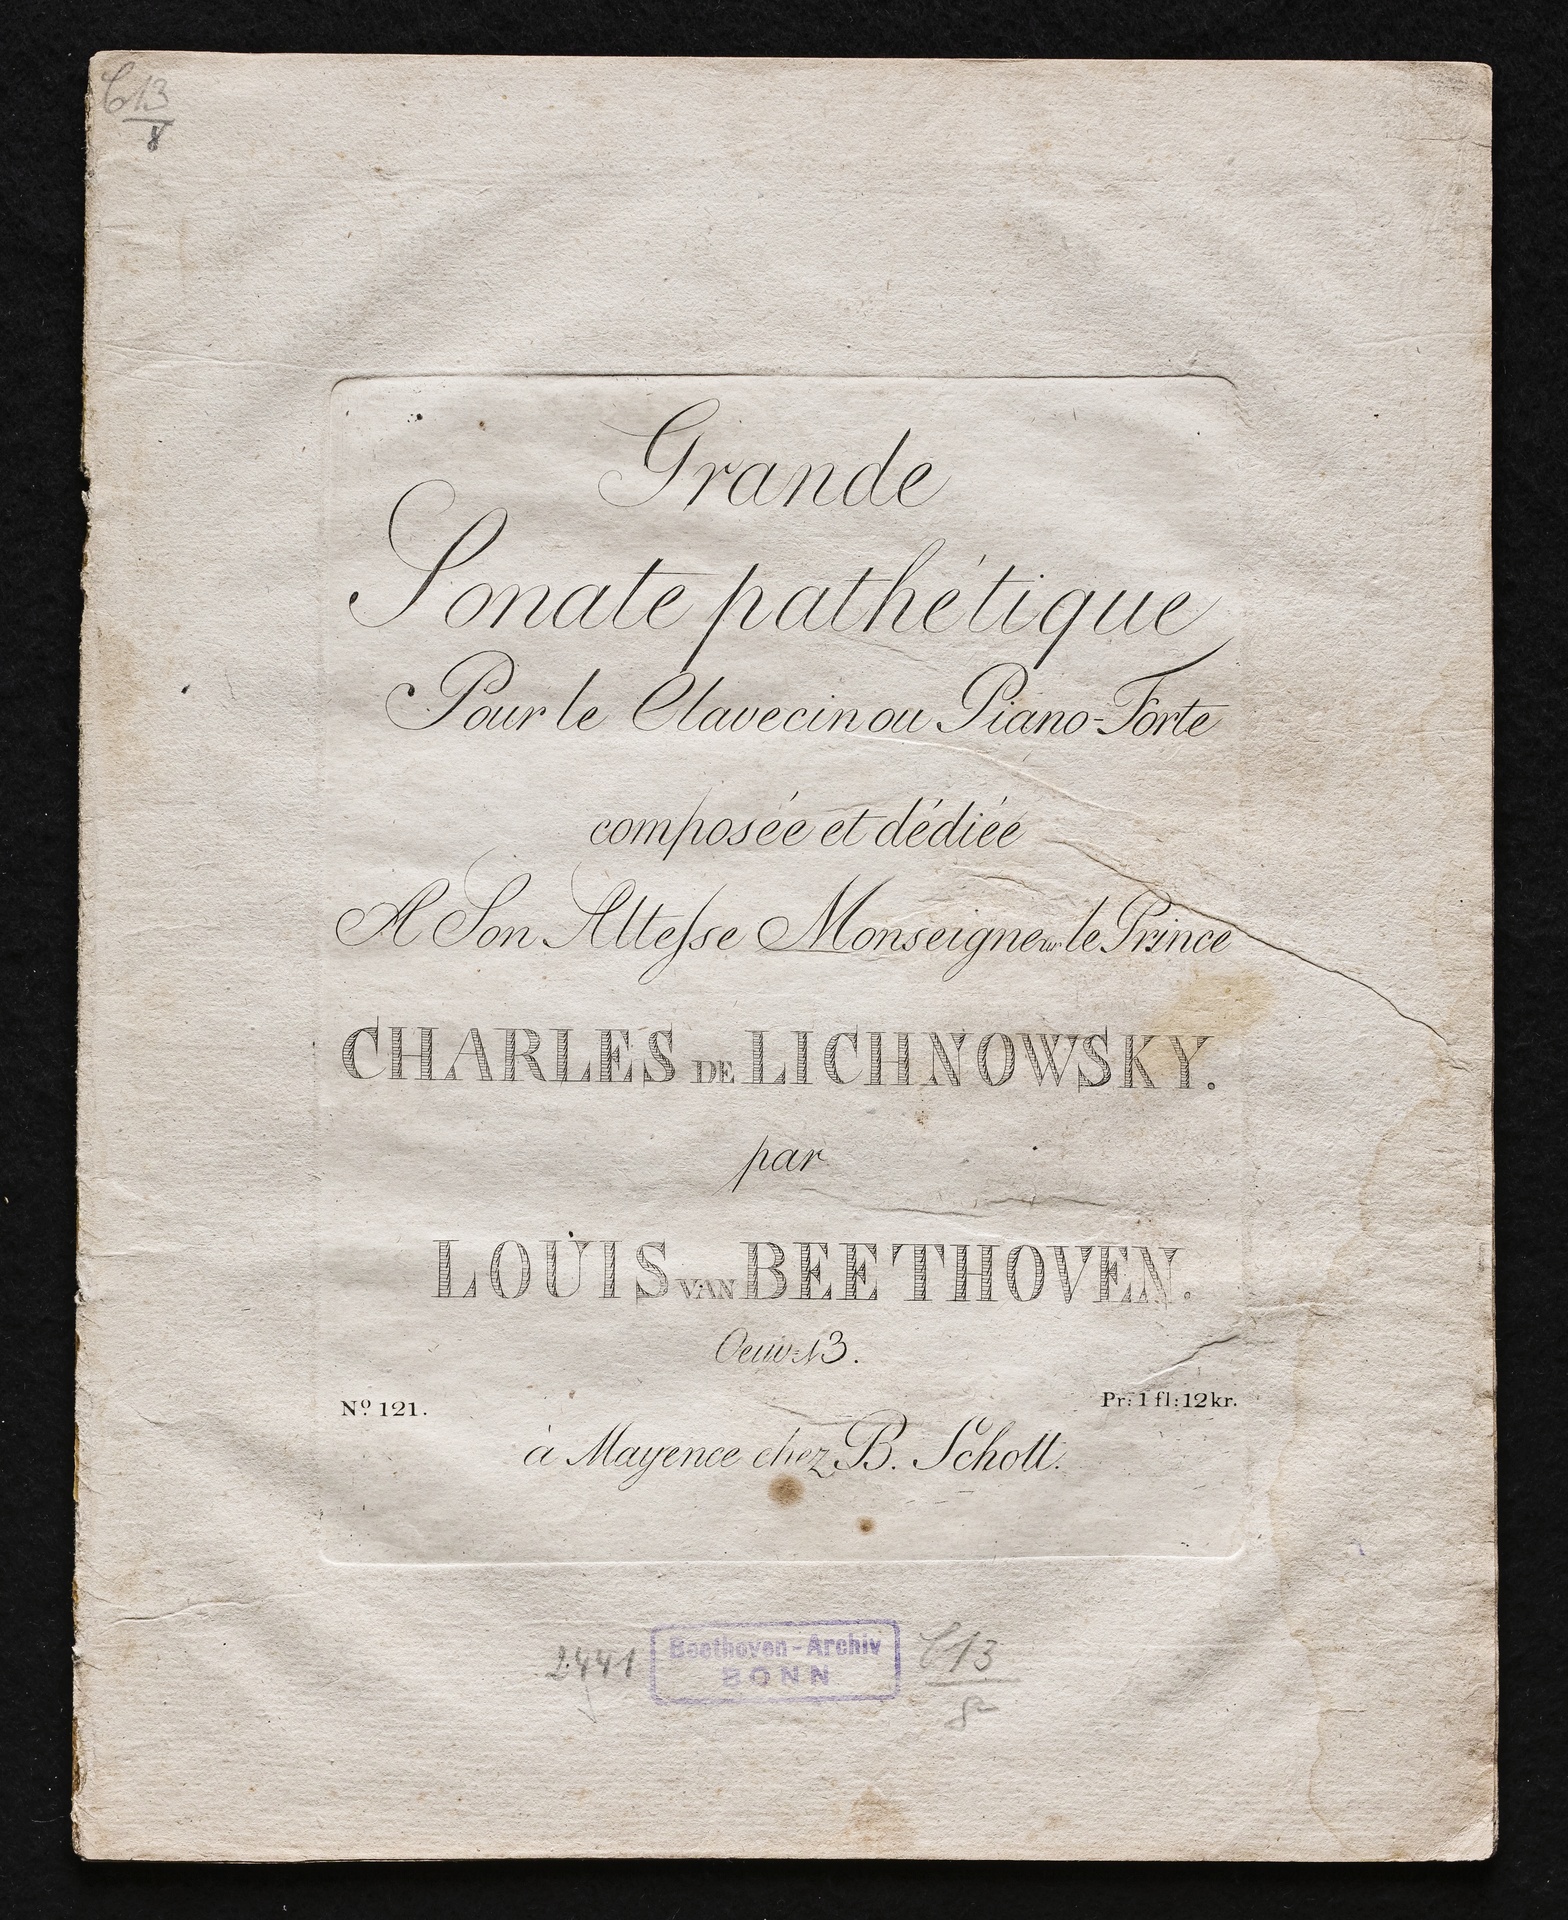 C 13
8
Grande
Sonate pathétique
Pour le Clavecin ou Piano-Forte
composée et dédiée
A Son Altesse Monseigneur le Prince
CHARLES DE LICHNOWSKY.
par
LOUIS VAN BEETHOVEN.
Oeuv: 13.
Nº 121.
Pr: 1 fl: 12 kr.
à Mayence chez B. Schott.
2441
Beethoven-Archiv
BONN
C 13
8